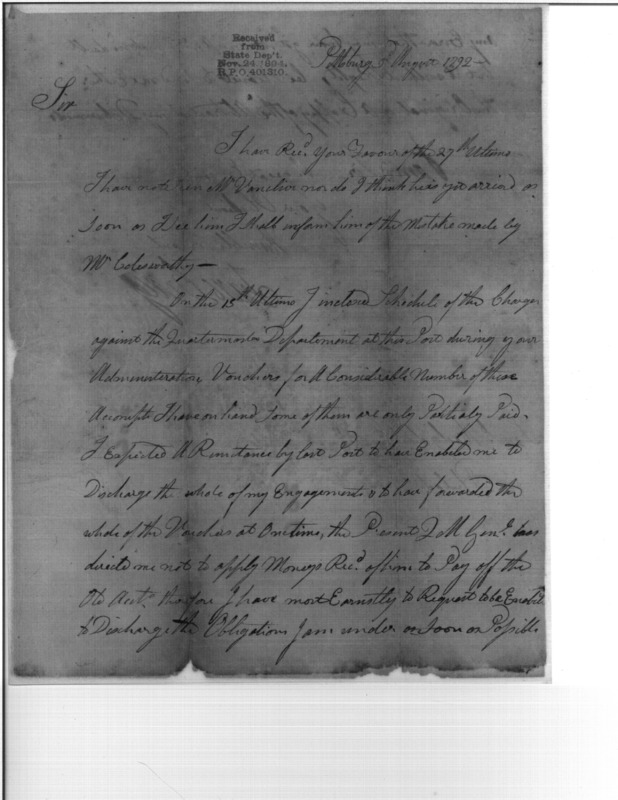 Received
from
State Dep't.
Nov. 24 1894.
R.P.O. 401310.
Pittsburg August 1792
Sir
I have Recd. Your Favour of the 27th Ultimo
I have not seen Mr Vancleve nor do I think he is yet arrived as
Soon as I See him I Shall inform him of the Mistake made by
Mr Colesworthy —
On the 15th Ultimo I inclosed Schedule of the Charges
against the Quartermasters Department at this Post during your
Administration, Vouchers for A Considerable Number of these
Accompts I have on hand Some of them are only Partialy Paid.
I Expected A Remitance by last Post to have Enabled me to
Discharge the whole of my Engagements & to have forwarded the
whole of the Vouchers at One time, the Present Q M Genl. has
directd me not to apply Moneys Recd. of him to Pay off the
Old Acts. therefore I have most Earnestly to Request to be Enabled
to Discharge the Obligations I am under as Soon as Possible